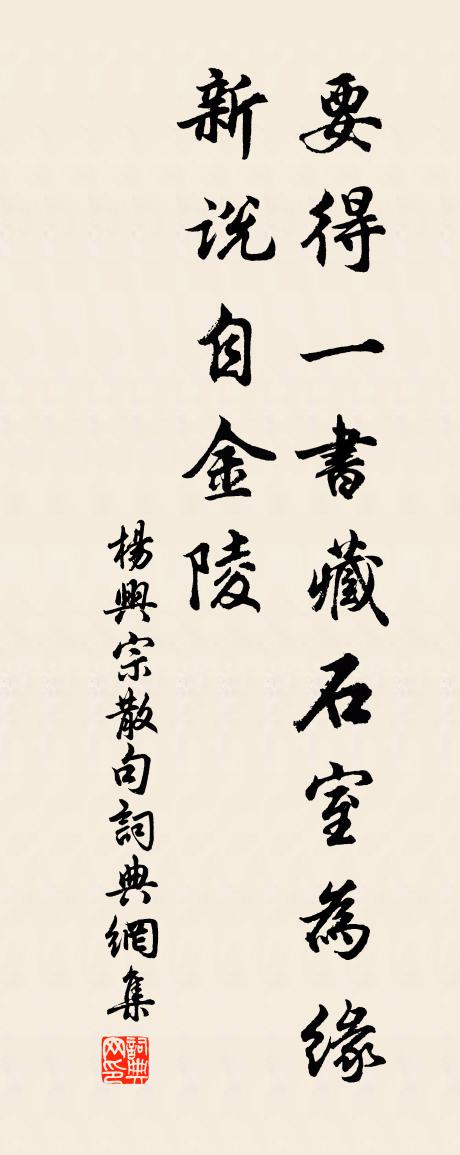 要得一書藏石室為緣
新说自金陵
楊興宗散句詞典網集
詞典网印